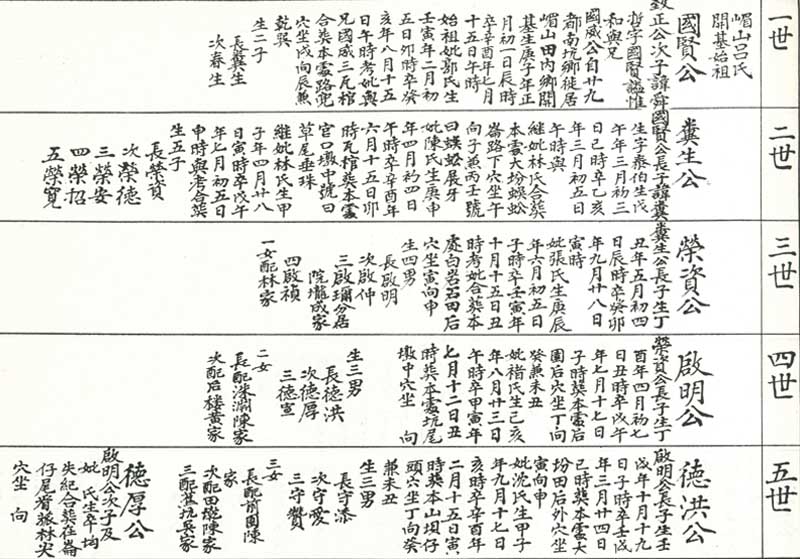 一世
嵋山呂氏
開基始祖
國賢公
致正公次子諱舜
哲字國賢謚惟
和與兄
國威公自廿九
都南坑鄉徙居
嵋山田內鄉開
基生庚子年正
月初一日辰時
卒辛酉年七月
十五日午時
始祖妣郭氏生
壬寅年二月初
五日卯時卒癸
亥年八月十五
日午時考妣與
兄國威三瓦棺
合葬本處路兜
穴坐戌向辰兼
乾巽
生二子
長糞生
次春生
二世
糞生公
國賢公長子諱糞
生字泰伯生戊
午年三月初三
日巳時卒乙亥
年三月初五日
午時與
継妣林氏合葬
本處大坋蜈蚣
崙路下穴坐午
向子兼丙壬號
曰蜈蚣展牙
妣陳氏生庚申
年四月初四日
午時卒辛酉年
六月十五日卯
時瓦棺葬本處
官口墩中號曰
草尾垂珠
継妣林氏生甲
子年四月廿八
日寅時卒戊午
年七月初五日
申時與考合葬
生五子
長榮資
次榮德
三榮安
四榮招
五榮寬
三世
榮資公
糞生公長子生丁
丑年五月初四
日辰時卒癸卯
年九月廿八日
寅時
妣張氏生庚辰
年六月初五日
子時卒壬寅年
十月十五日丑
時考妣合葬本
處白岩石田后
穴坐寅向申
生四男
長啟明
次啟仲
三啟珊分居
院壠成家
四啟禎
一女配林家
四世
啟明公
榮資公長子生丁
酉年四月初七
日丑時卒戊午
年七月十七日
子時葬本處后
園后穴坐丁向
癸兼未丑
妣褚氏生己亥
年八月廿三日
午時卒甲寅年
七月十二日丑
時葬本處坑尾
墩中穴坐 向
生三男
長德洪
次德厚
三德宣
二女
長配溙瀰陳家
次配后樓黃家
五世
德洪公
啟明公長子生壬
戌年十月十九
日子時卒壬戌
年三月廿四日
巳時葬本處大
坋田后外穴坐
寅向申
妣沈氏生甲子
年九月十七日
亥時卒辛酉年
二月十五日寅
時葬本山垻仔
頭穴坐丁向癸
兼未丑
生三男
長守添
次守愛
三守贊
三女
長配前園陳
家
次配田墘陳家
三配葛坑吳家
德厚公
啟明公次子及
妣 氏生卒均
失紀合葬在崙
仔尾穴坐 向